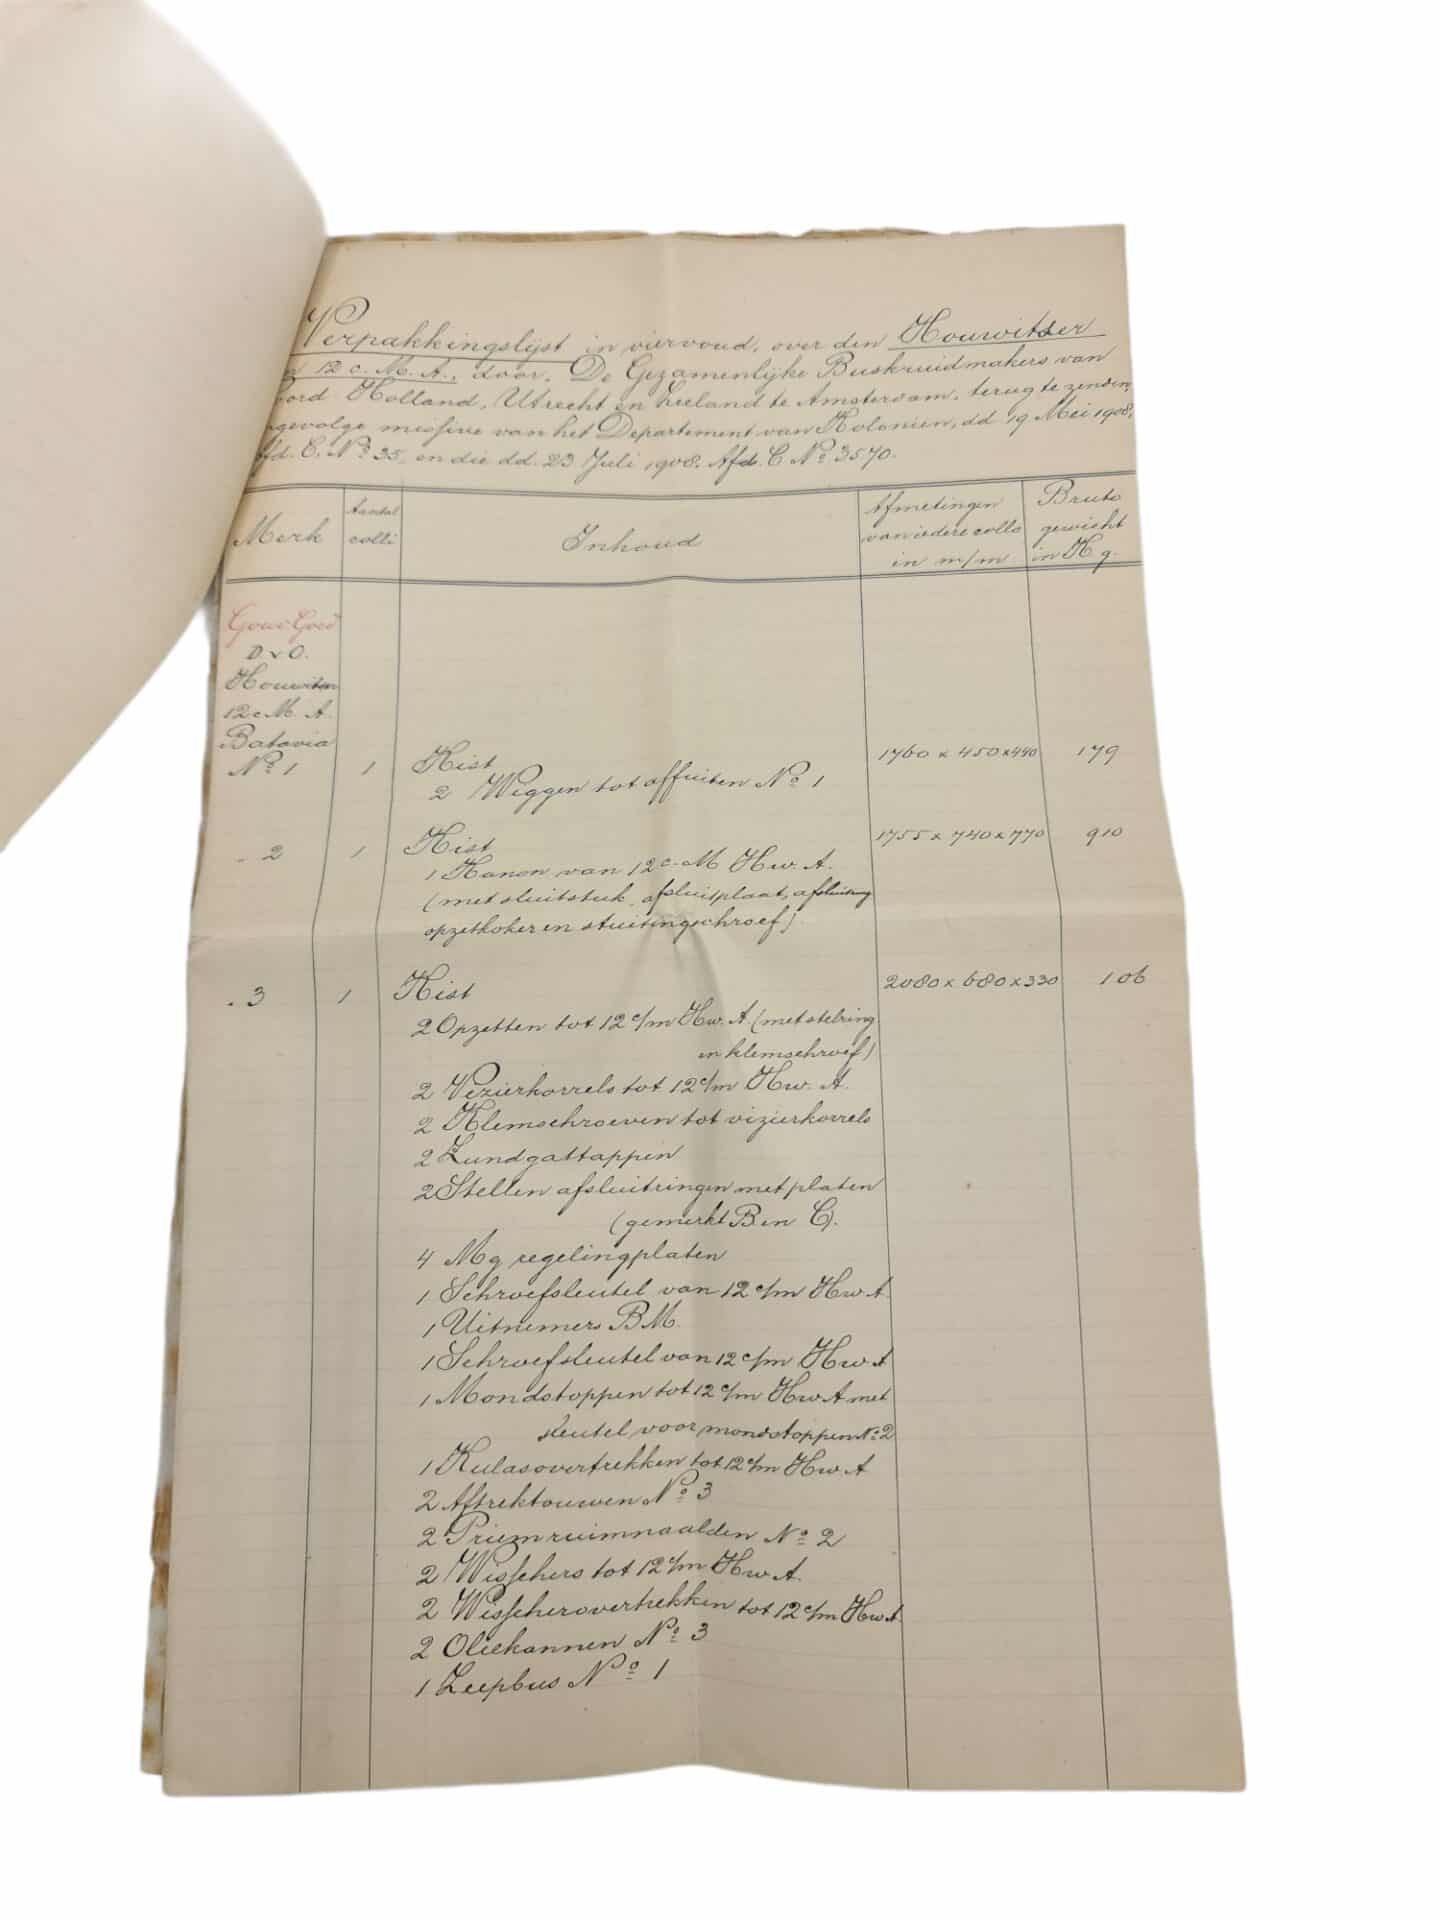 Verpakkingslijst in viervoud, over den Houwitser
12 c.M. A., door, De Gezamenlijke Buskruidmakers van
oord Holland, Utrecht en Zeeland te Amsterdam, terug te zenden,
gevolge missive van het Departement van Koloniën, dd 19 Mei 1908,
fd. C. Nº 35, en die dd. 23 Juli 1908. Afd. C Nº 3570.
Merk
Aantal colli
Inhoud
Afmetingen van iedere collo in m/m
Bruto gewicht in Kg.
Gouv. Goed
D v O.
Houwitser
12 c M. A.
Batavia
Nº 1 1 Kist 1760 x 450 x 440 179
2 Wiggen tot affuiten Nº 1
" 2 1 Kist 1755 x 740 x 770 910
1 Kanon van 12 c. M Hw. A.
(met sluitstuk, afsluitplaat, afsluitring
opzetkoker en stuitingschroef)
" 3 1 Kist 2080 x 680 x 330 106
2 Opzetten tot 12 c/m Hw. A. (met stelring
en klemschroef)
2 Vezierkorrels tot 12 c/m Hw. A.
2 Klemschroeven tot vizierkorrels
2 Zundgattappen
2 Stellen afsluitringen met platen
(gemerkt B en C).
4 Mg regelingplaten
1 Schroefsleutel van 12 c/m Hw A.
1 Uitnemers B M.
1 Schroefsleutel van 12 c/m Hw A
1 Mondstoppen tot 12 c/m Hw A met
sleutel voor mondstoppen Nº 2
1 Kulasovertrekken tot 12 c/m Hw. A
2 Aftrektouwen Nº 3
2 Priemruimnaalden Nº 2
2 Wisschers tot 12 c/m Hw A.
2 Wisscherovertrekken tot 12 c/m Hw A.
2 Oliekannen Nº 3
1 Zeepbus Nº 1